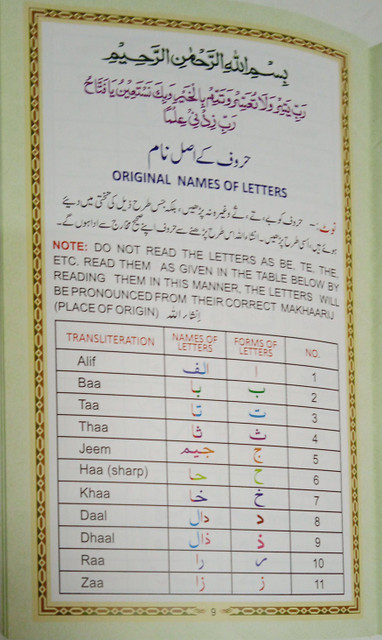 بِسْمِ اللهِ الرَّحْمٰنِ الرَّحِيْمِ
رَبِّ يَسِّرْ وَلَا تُعَسِّرْ وَتَمِّمْ بِالْخَيْرِ وَبِكَ نَسْتَعِيْنُ يَا فَتَّاحُ
رَبِّ زِدْنِيْ عِلْمًا
حروف کے اصل نام
ORIGINAL NAMES OF LETTERS
نوٹ:- حروف کو بے، تے، ثے وغیرہ نہ پڑھیں، بلکہ جس طرح ذیل کی تختی میں دیئے
ہوئے ہیں، اسی طرح پڑھیں۔ انشاء اللہ اس طرح پڑھنے سے حروف اپنے صحیح مخارج سے ادا ہوں گے۔
NOTE: DO NOT READ THE LETTERS AS BE, TE, THE,
ETC. READ THEM AS GIVEN IN THE TABLE BELOW BY
READING THEM IN THIS MANNER, THE LETTERS WILL
BE PRONOUNCED FROM THEIR CORRECT MAKHAARIJ
(PLACE OF ORIGIN) إنشاء الله
TRANSLITERATION NAMES OF LETTERS FORMS OF LETTERS NO.
Alif الف ا 1
Baa با ب 2
Taa تا ت 3
Thaa ثا ث 4
Jeem جيم ج 5
Haa (sharp) حا ح 6
Khaa خا خ 7
Daal دال د 8
Dhaal ذال ذ 9
Raa را ر 10
Zaa زا ز 11
9